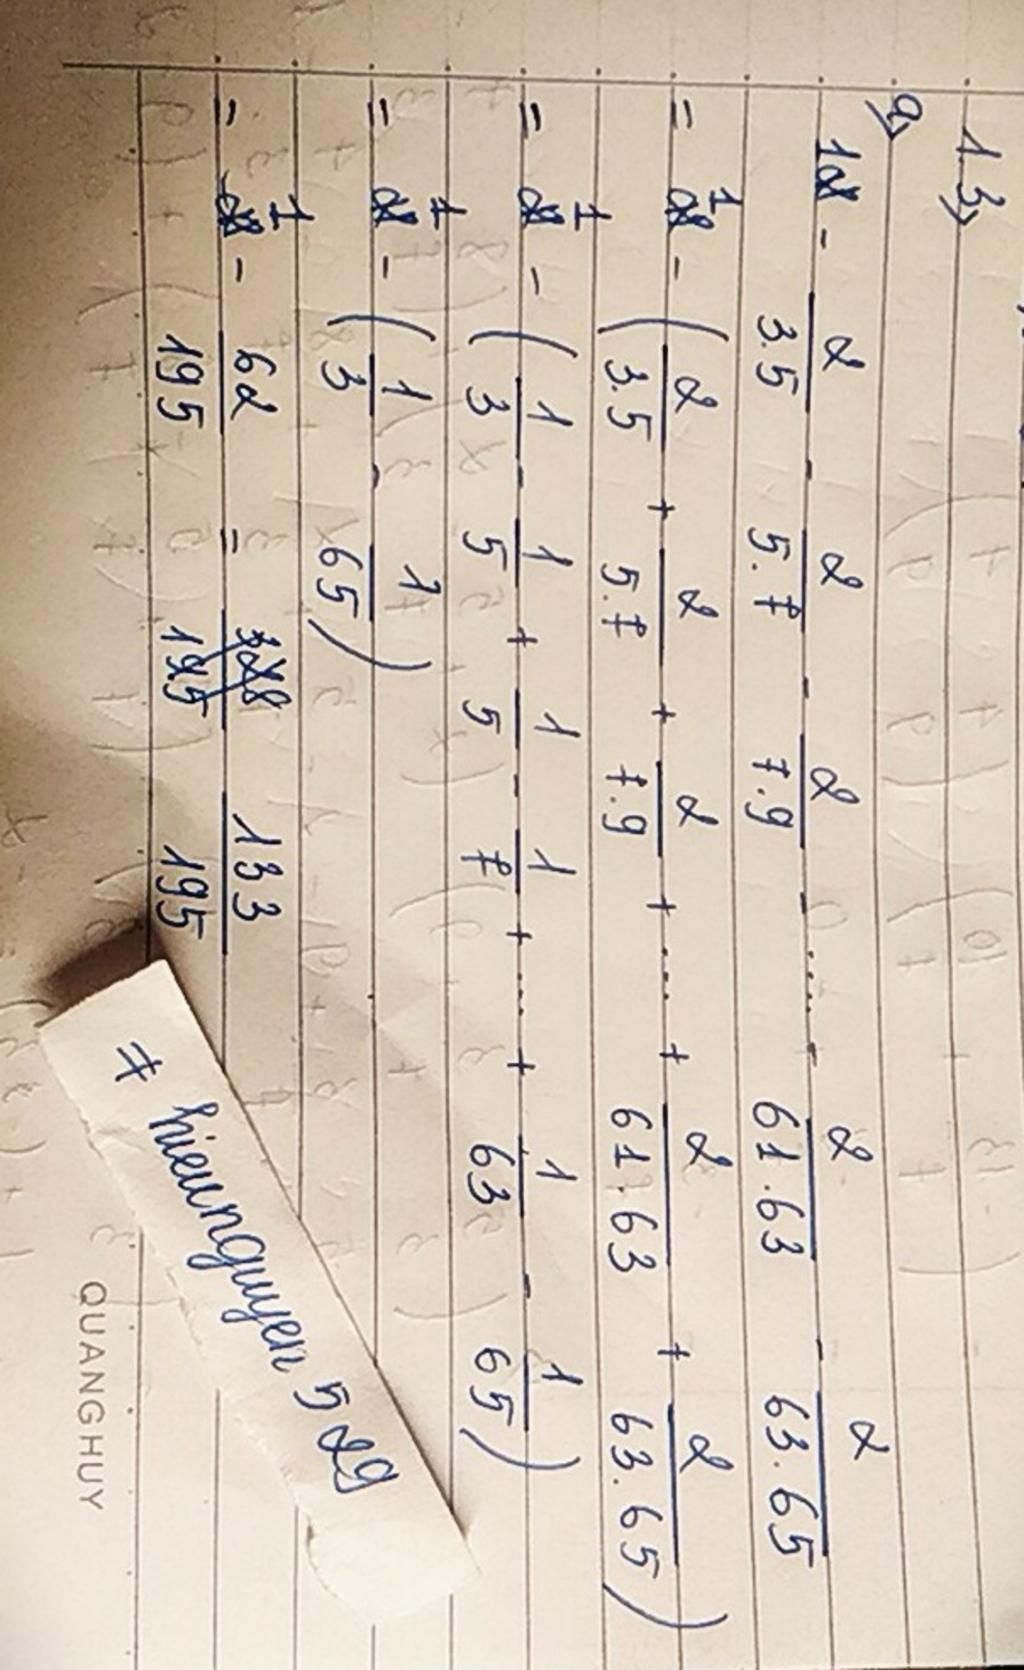 1.3,
a,
1 - 2/3.5 - 2/5.7 - 2/7.9 - .... - 2/61.63 - 2/63.65
= 1 - ( 2/3.5 + 2/5.7 + 2/7.9 + ... + 2/61.63 + 2/63.65 )
= 1 - ( 1/3 - 1/5 + 1/5 - 1/7 + ... + 1/63 - 1/65 )
= 1 - ( 1/3 - 1/65 )
= 1 - 62/195 = 133/195
# hieunguyen 529
QUANGHUY